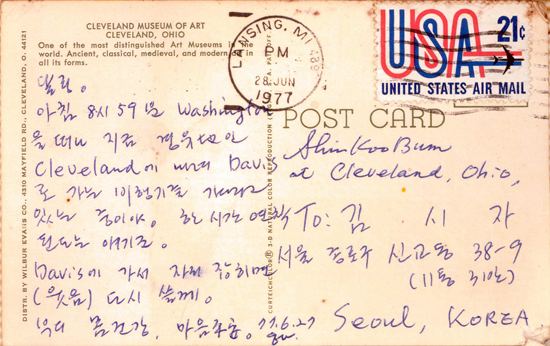 CLEVELAND MUSEUM OF ART
CLEVELAND, OHIO
One of the most distinguished Art Museums in the
world. Ancient, classical, medieval, and modern art in
all its forms.
아침 8시 59분 Washington
을 떠나 지금 경유지인
Cleveland에 내려 Davis
로 가는 비행기를 기다리고
있는 중이야. 한 시간 연착
된다는 얘기군.
Davis에 가서 자리 잡히면
(웃음) 다시 쓸께.
몸건강, 마음주춘. 77.6.27
DISTR. BY WILBUR EVANS CO., 4310 MAYFIELD RD., CLEVELAND, O. 44121
CURTEICHCOLOR® 3-D NATURAL COLOR REPRODUCTION
LANSING, MI
PM
28 JUN
1977
USA 21¢
UNITED STATES AIR MAIL
POST CARD
Shin Koo Bum
at Cleveland, Ohio,
To: 김 시 자
서울 종로구 신교동 38-9
(11통 3반)
Seoul, KOREA